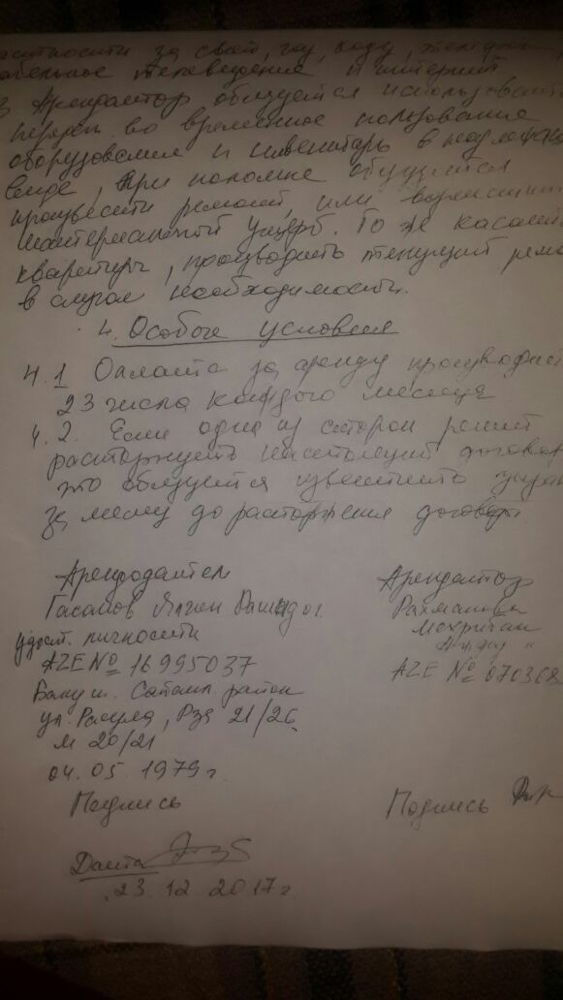 за свой, газ, воду, телефон,
кабельное телевидение и интернет
3 Арендатор обязуется использовать
перед во временное пользование
оборудования и инвентарь в надлежащ
виде, При поломке обязуется
произвести ремонт, или возместить
материальный ущерб. То же касается
квартиры, производить текущий ремо
в случае необходимости.
4. Особые условия
4.1 Оплата за аренду производится
23 числа каждого месяца
4.2. Если одна из сторон решит
расторгнуть настоящий договор
то обязуется известить
за месяц до расторжения договора
Арендодатель
Гасанов Рашид
удост. личности
AZE № 16995037
Баку ш. Сабаил район
ул. Расула, Рза 21/26
м 20/21
04.05 1979 г
Подпись
Арендатор
Рахманова
Мехрибан
AZE №
Подпись
Дата
23 12 2017 г